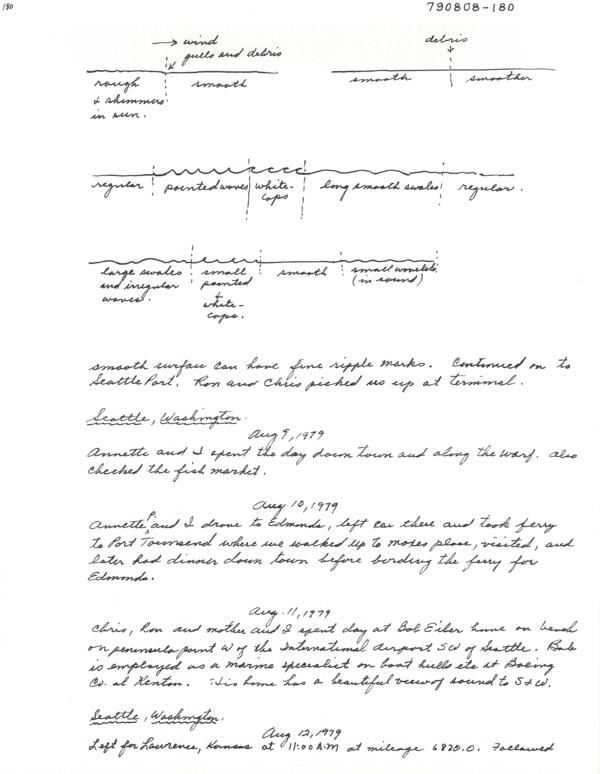 180
790808-180
→ wind
gulls and debris
debris
rough
+ shimmers
in sun.
smooth
smooth
smoother
regular
pointed waves
white-
caps
long smooth swales
regular.
large swales
and irregular
waves.
small
pointed
+
white-
caps.
smooth
small wavelets
(in sound)
smooth surface can have fine ripple marks. Continued on to
Seattle Port. Ron and Chris picked us up at terminal.
Seattle, Washington.
Aug 9, 1979
Annette and I spent the day down town and along the warf. also
checked the fish market.
Aug 10, 1979
Annette P. and I drove to Edmonds, left car there and took ferry
to Port Townsend where we walked up to moses place, visited, and
later had dinner down town before bording the ferry for
Edmonds.
Aug. 11, 1979
Chris, Ron and mother and I spent day at Bob Eiber home on beach
on peninsula point W of the International airport SW of Seattle. Bob
is employed as a marine specialist on boat hulls etc at Boeing
Co. at Renton. His home has a beautiful view of sound to S & W.
Seattle, Washington.
Aug 12, 1979
Left for Lawrence, Kansas at 11:00 A.M at mileage 6820.0. Followed